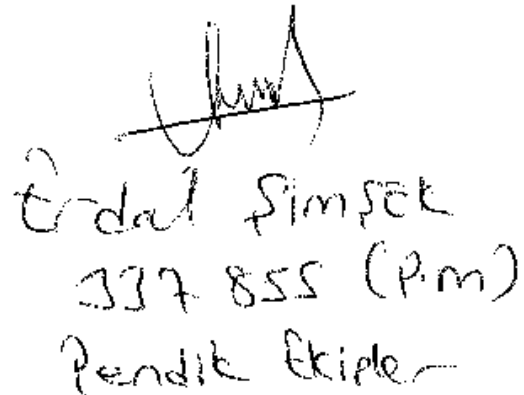 Erdal Şimşek
337 855 (P.m)
Pendik Ekipler